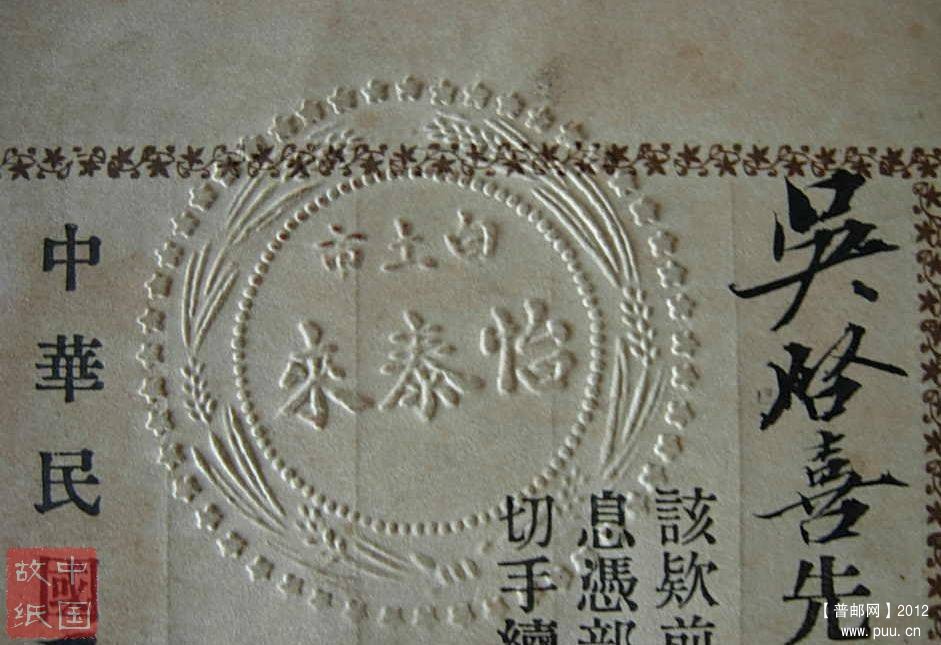 吳喜先
該欵前
息憑部
切手續
白土市
怡泰來
中華民國
中国
故纸
【普邮网】2012
www.puu.cn